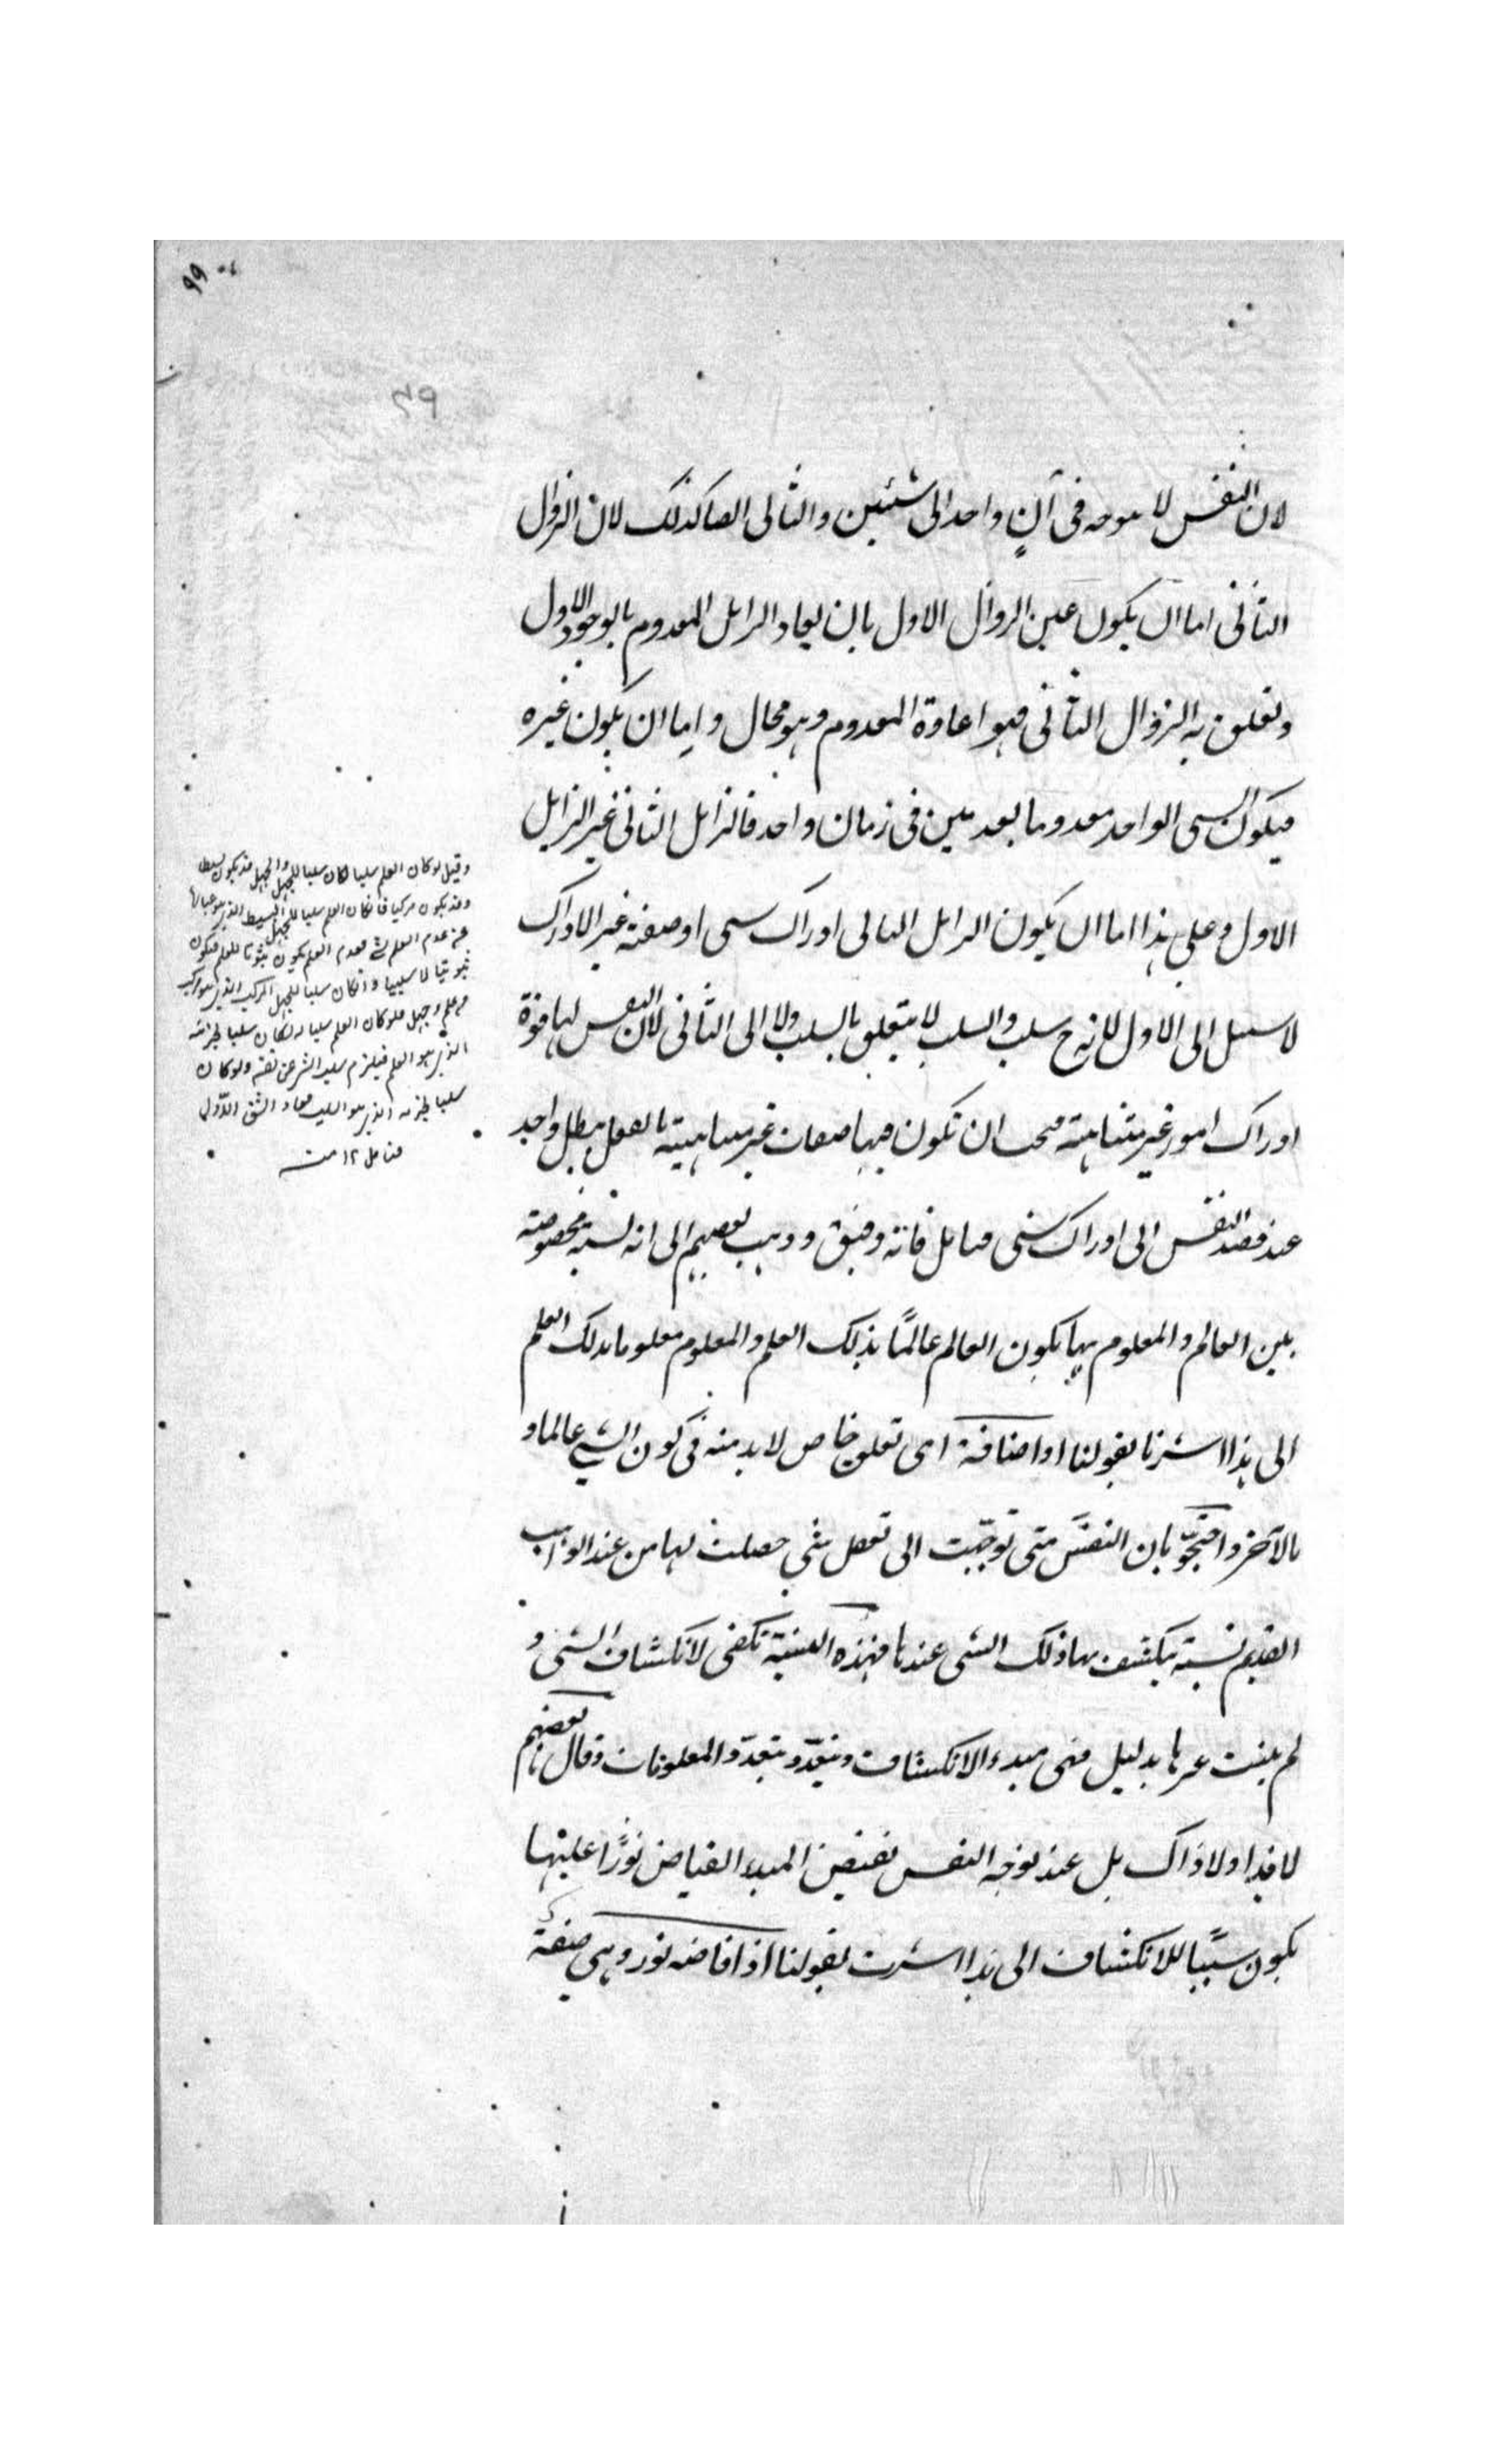 ٩٩
٣٩
لان النفس لا توجه فى آنٍ واحد الى شيئين والتالى ايضا كذلك لان الزوال
الثانى اما ان يكون عين الزوال الاول بان يعاد الزايل المعدوم بالوجود الاول
وتعلق به الزوال الثانى فهو اعادة المعدوم وهو محال واما ان يكون غيره
فيكون الشى الواحد معدوما بعدمين فى زمان واحد فالزايل الثانى غير الزايل
الاول وعلى هذا اما ان يكون الزايل التالى ادراك شى او صفته غير الادراك
لا سبيل الى الاول لانه ح سلب والسلب لا يتعلق بالسلب ولا الى الثانى لان النفس لها قوة
ادراك امور غير متناهية فيجب ان تكون فيها صفات غير متناهية بالفعل يبطل واحد
عند قصد النفس الى ادراك شى فتامل فانه دقيق وذهب بعضهم الى انه نسبة مخصوصة
بين العالم والمعلوم بها يكون العالم عالمًا بذلك العلم والمعلوم معلوما بذلك العلم
الى هذا اشرنا بقولنا او اضافة اى تعلق خاص لا بد منه فى كون الشى عالما و
بالآخر واحتجّو بان النفسَ متى توجّهت الى تعقل شى حصلت لها من عند الواهب
القديم نسبة ينكشف بها ذلك الشى عندها فهذه النسبة تكفى لانكشاف الشى و
لم يثبت غيرها بدليل فهى مبدء الانكشاف ويتعدّد بتعدّد المعلومات وقال بعضهم
لا هذا ولا ذاك بل عند توجه النفس يفيض المبدء الفياض نورًا عليها
يكون سببًا للانكشاف الى هذا اشرت بقولنا اذ افاضه نور وهى صفة
وقيل لو كان العلم سلبيا لكان سلبا للجهل والجهل قد يكون بسيطا
وقد يكون مركبا فان كان العلم سلبا للجهل البسيط الذى هو عبارة
عن عدم العلم لشى فعدم العلم يكون ثبوتا للعلم فيكون
ثبوتيا لا سلبيا وان كان سلبا للجهل المركب الذى هو مركب
من علم وجهل فلو كان العلم سلبا له لكان سلبا لجزئه
الذى هو العلم فيلزم سلب الشى عن نفسه ولو كان
سلبا لجزئه الذى هو السلب فعاد الشق الاول
فتامل ١٢ منه